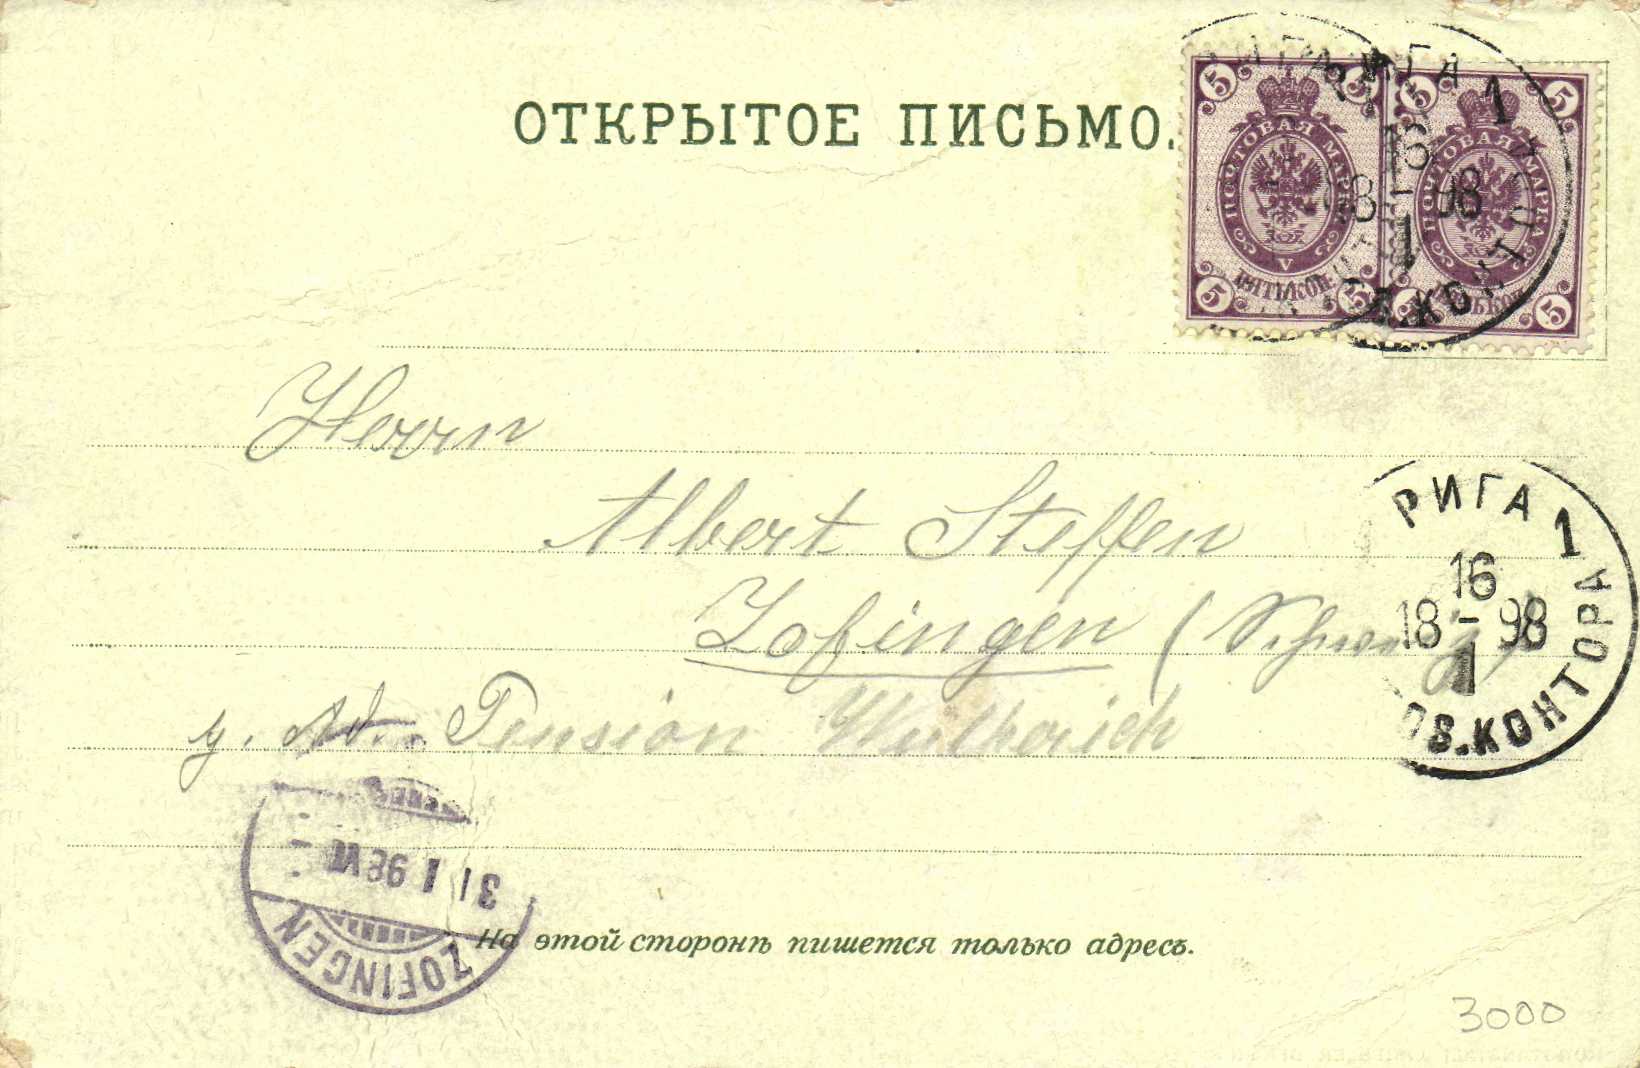 ОТКРЫТОЕ ПИСЬМО.
5 5 5 5
ПОЧТОВАЯ МАРКА
V
ПЯТЬ КОП.
5 5 5 5
ПОЧТОВАЯ МАРКА
РИГА 1
16
18-98
1
КОНТ
Herrn
Albert Steffen
Zofingen (Schweiz)
Pension
РИГА 1
16
18-98
1
ОВ. КОНТОРА
31 I 98 VI -
ZOFINGEN
На этой сторонѣ пишется только адресъ.
3000